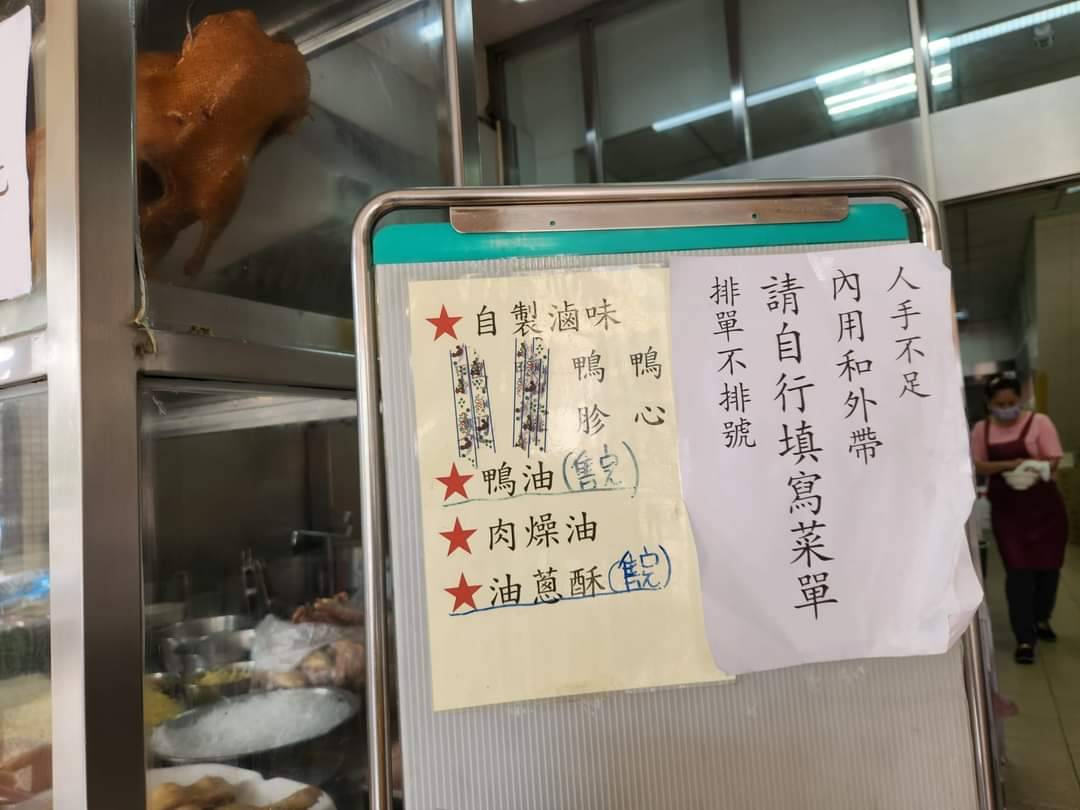 ★自製滷味
鴨胗
鴨心
★鴨油(售完)
★肉燥油
★油蔥酥(售完)
人手不足
內用和外帶
請自行填寫菜單
排單不排號